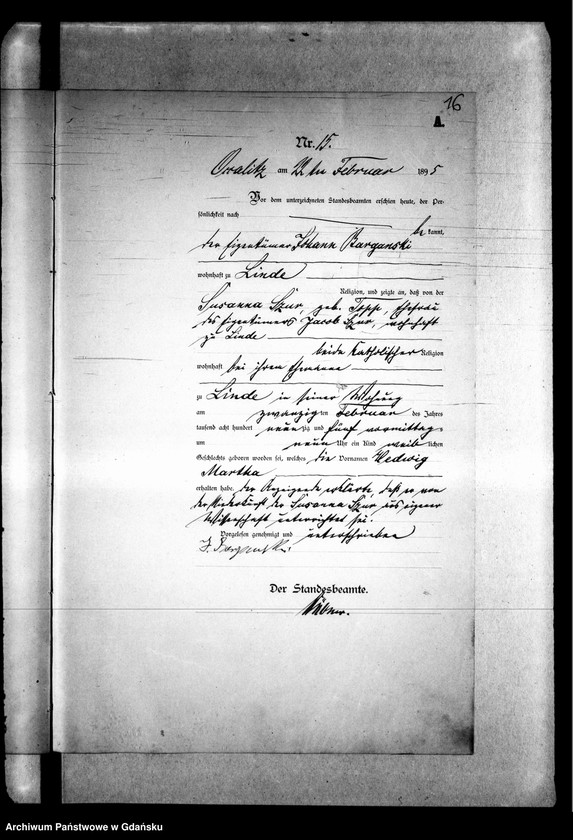 16
A.
Nr. 15.
Oralitz am 22ten Februar 1895
Vor dem unterzeichneten Standesbeamten erschien heute, der Per-
sönlichkeit nach
be kannt,
der Eigentümer Johann Barganski
wohnhaft zu Linde
Religion, und zeigte an, daß von der
Susanna Szur, geb. Topp, Ehefrau
des Eigentümers Jacob Szur, wohnhaft
zu Linde
beide Katholischer Religion
wohnhaft bei ihrem Ehemanne
zu Linde in seiner Wohnung
am zwanzigsten Februar des Jahres
tausend acht hundert neun zig und fünf vormittags
um neun Uhr ein Kind weib lichen
Geschlechts geboren worden sei, welches die Vornamen Hedwig
Martha
erhalten habe. Der Anzeigende erklärte, daß er von
der Niederkunft der Susanna Szur aus eigener
Wissenschaft unterrichtet sei.
Vorgelesen, genehmigt und unterschrieben
J. Barganski
Der Standesbeamte.
Archiwum Państwowe w Gdańsku